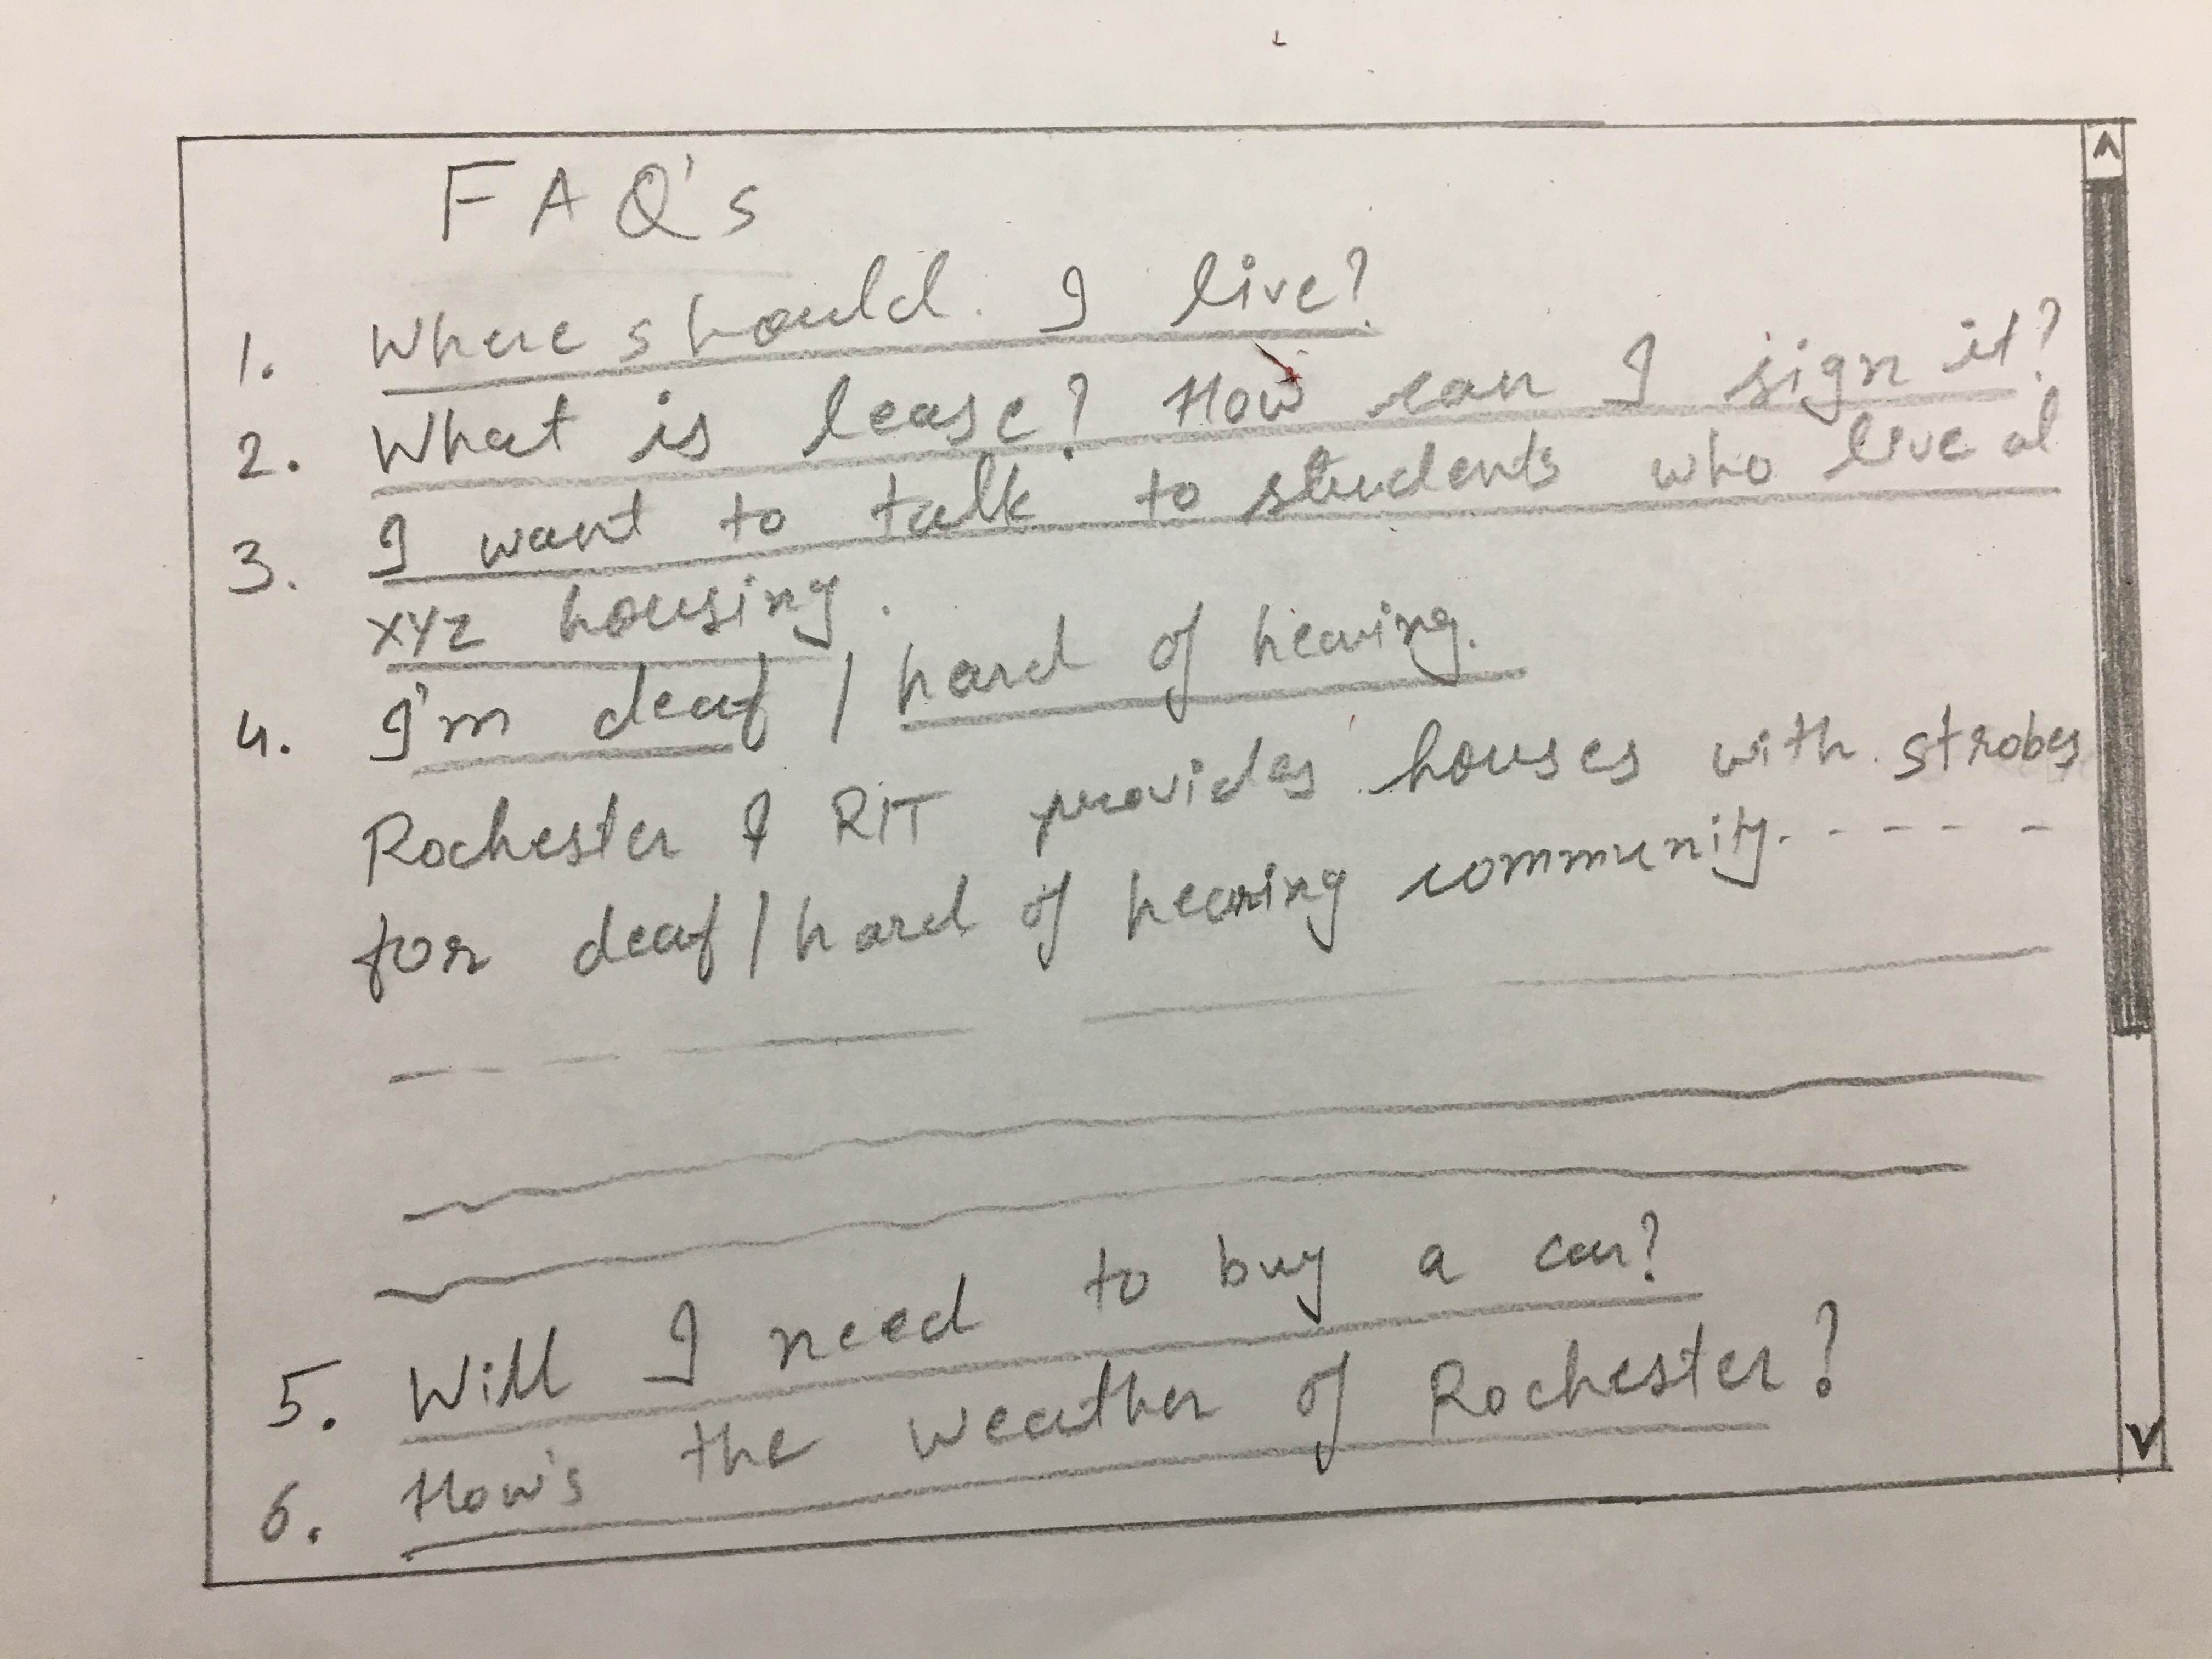 FAQ's
1. Where should I live?
2. What is lease? How can I sign it?
3. I want to talk to students who live at
xyz housing.
4. I'm deaf / hard of hearing.
Rochester & RIT provides houses with strobes
for deaf / hard of hearing community. - - - -
5. Will I need to buy a car?
6. How's the weather of Rochester?